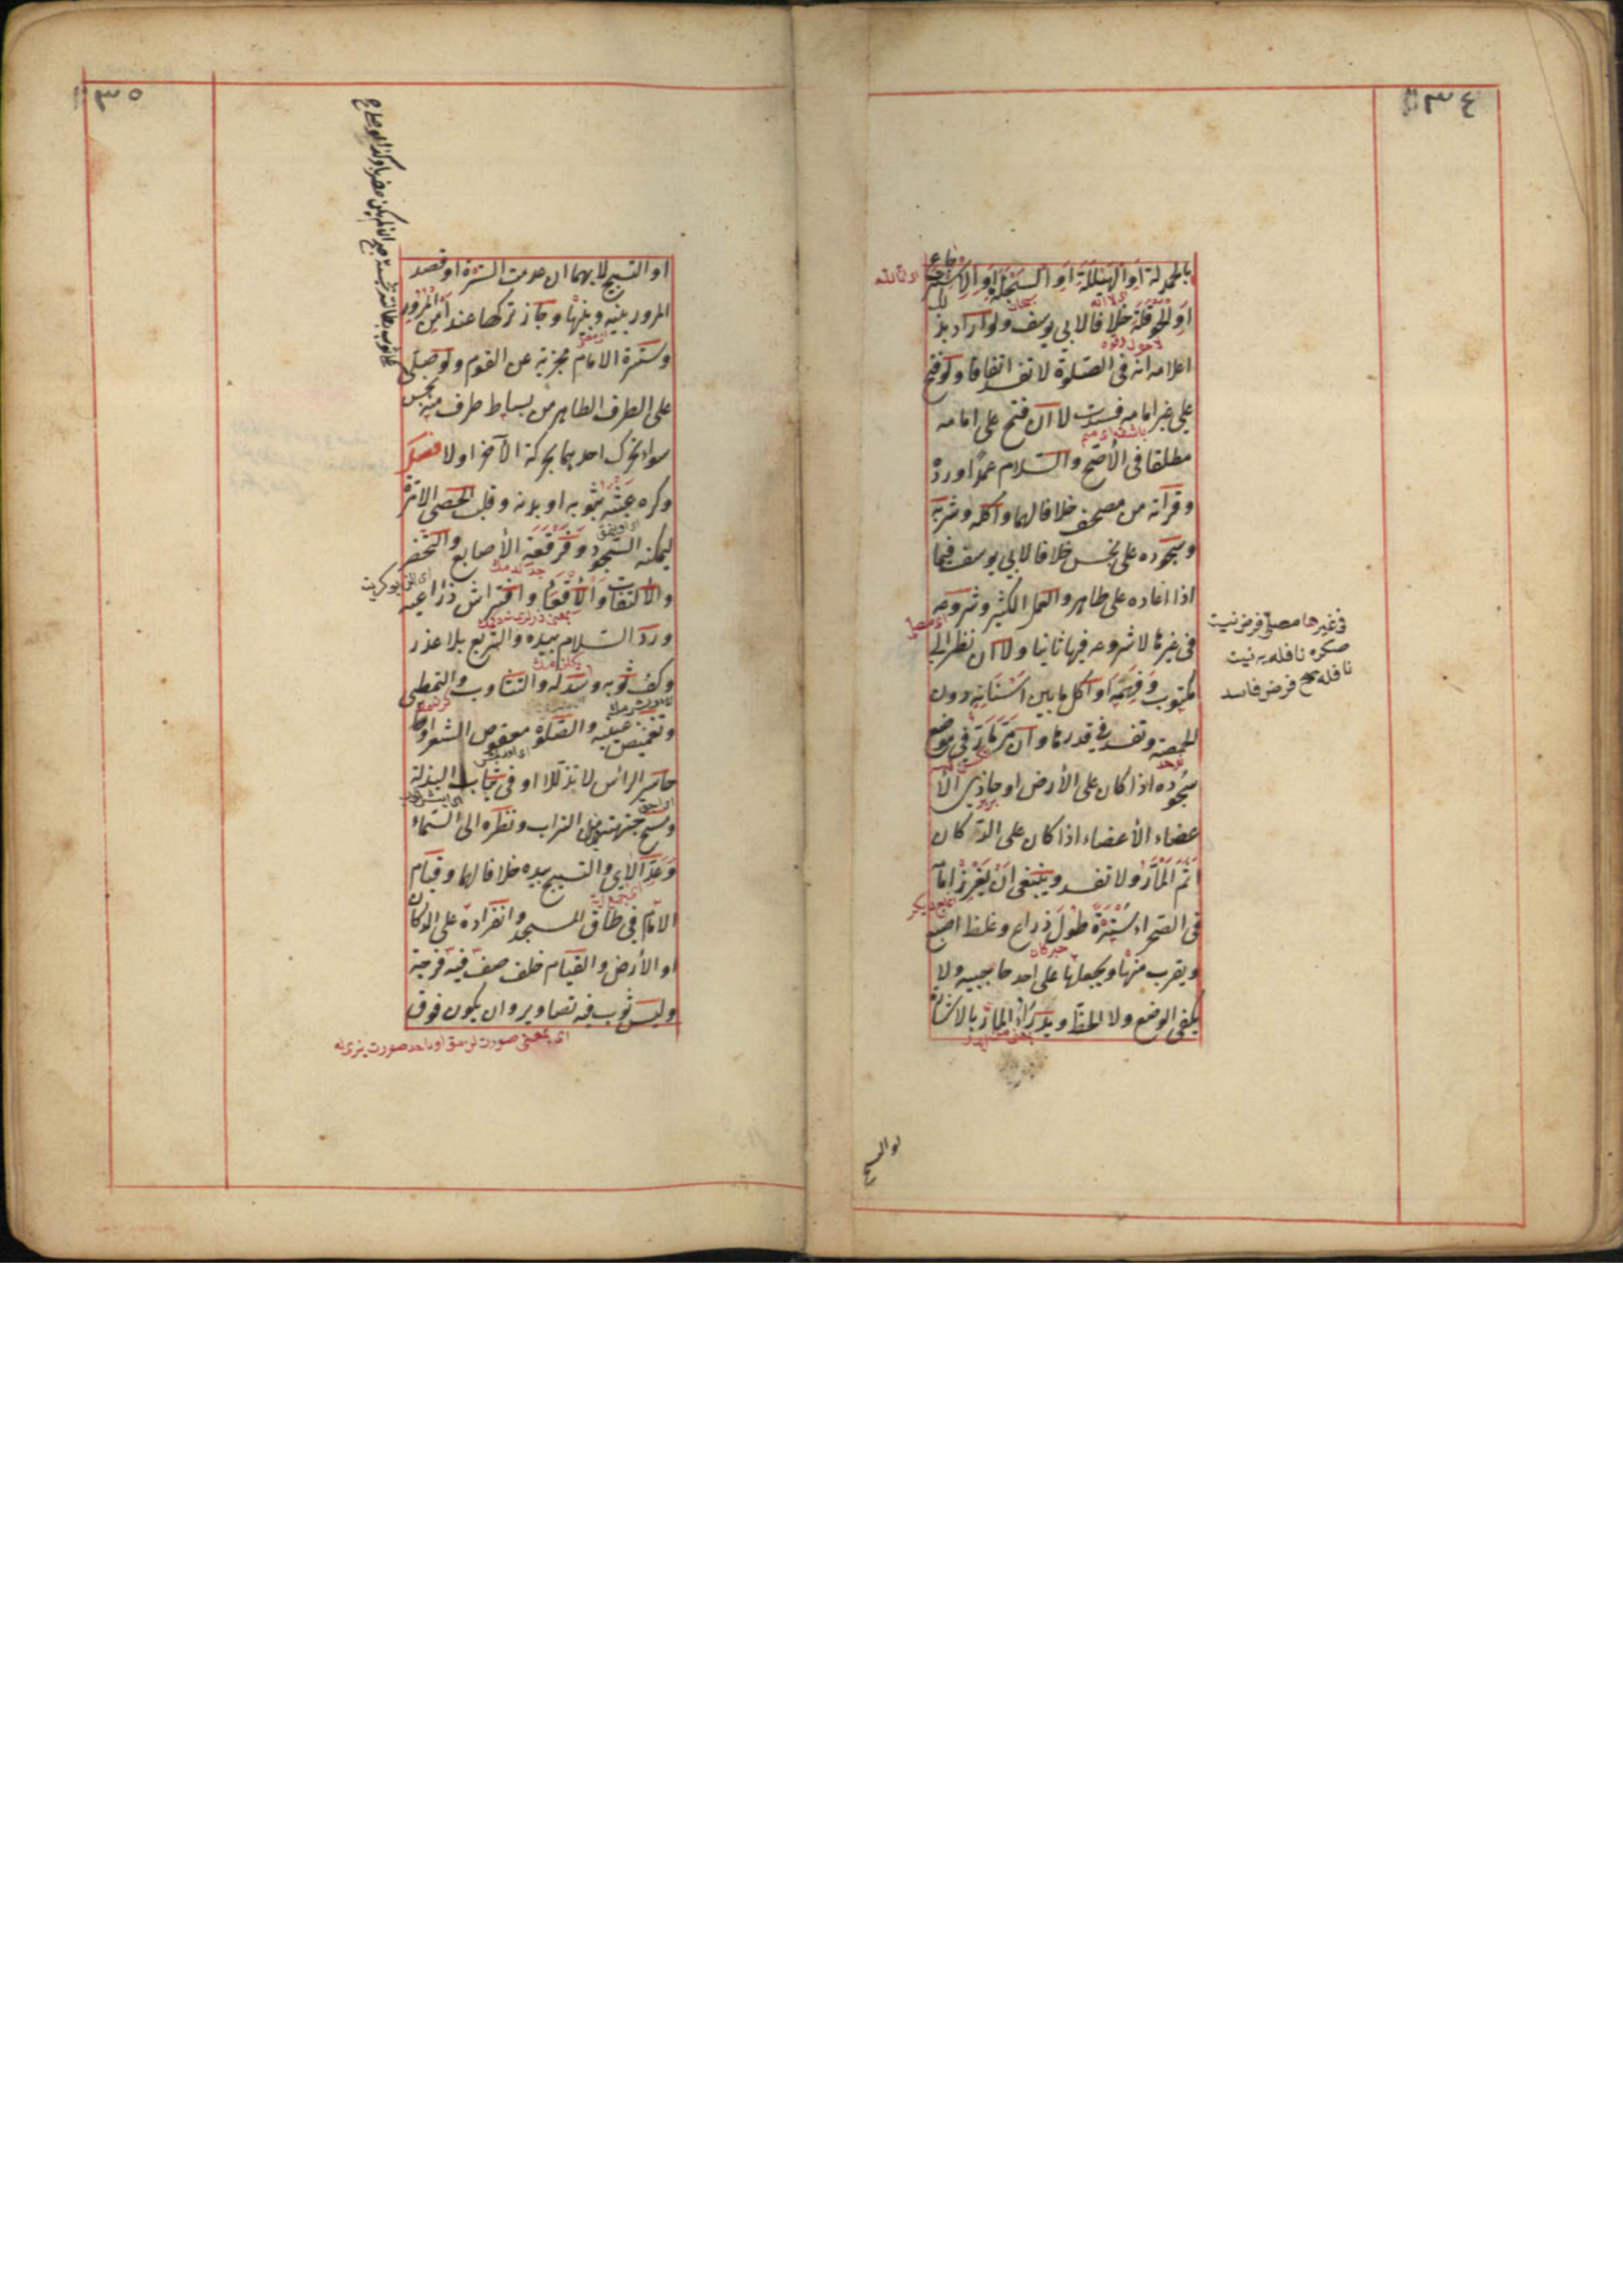 ٣٤
بالحمدلة او الهيللة او السبحلة او الاسترجاع
او الحوقلة خلافا لابى يوسف ولو اراد بذلك
اعلامه انه فى الصلوة لا تفسد اتفاقا ولو فتح
على غير امامه فسدت لا ان فتح على امامه
مطلقا فى الأصح والسلام عمدا ورده
وقرائته من مصحف خلافا لهما واكله وشربه
وسجوده على نجس خلافا لابى يوسف فيما
اذا اعاده على طاهر والعمل الكثير وشروعه
فى غيرها لا شروعه فيها ثانيا ولا ان نظر الى
مكتوب وفهمه او اكل ما بين اسنانه دون
الحمصة وتفسد فى قدرها وان مر مار فى موضع
سجوده اذا كان على الأرض او حاذى الأ
عضاء الأعضاء اذا كان على الدكان
اثم المار ولا تفسد وينبغى ان يغرز امامه
فى الصحراء سترة طول ذراع وغلظ اصبع
ويقرب منها ويجعلها على احد حاجبيه ولا
يكفى الوضع ولا الخط ويدرأ المار بالاشارة
فى غيرها مصلى فرض نيت
صكره نافله يه نيت
نافله صح فرض فاسد
او التسبيح
٣٥
او التسبيح لا بهما ان عدمت السترة او قصد
المرور بينه وبينها وجاز تركها عند امن المرور
وسترة الامام مجزية عن القوم ولو صلى
على الطرف الطاهر من بساط طرف منه نجس
سواء تحرك احدهما بحركة الآخر او لا فصل
وكره عبثه بثوبه او بدنه وقلب الحصى الا مرة
ليمكنه السجود وفرقعة الأصابع والتخصر
والالتفات والأقعاء وافتراش ذراعيه
ورد السلام بيده والتربع بلا عذر
وكف ثوبه وسدله والتثاوب والتمطى
وتغميض عينيه والصلاة معقوص الشعر او
حاسر الرأس لا تذللا او فى ثياب البذلة
ومسح جبهته من التراب ونظره الى السماء
وعد الآى والتسبيح بيده خلافا لهما وقيام
الامام فى طاق المسجد وانفراده على الدكان
او الأرض والقيام خلف صف فيه فرجة
ولبس ثوب فيه تصاوير وان يكون فوق